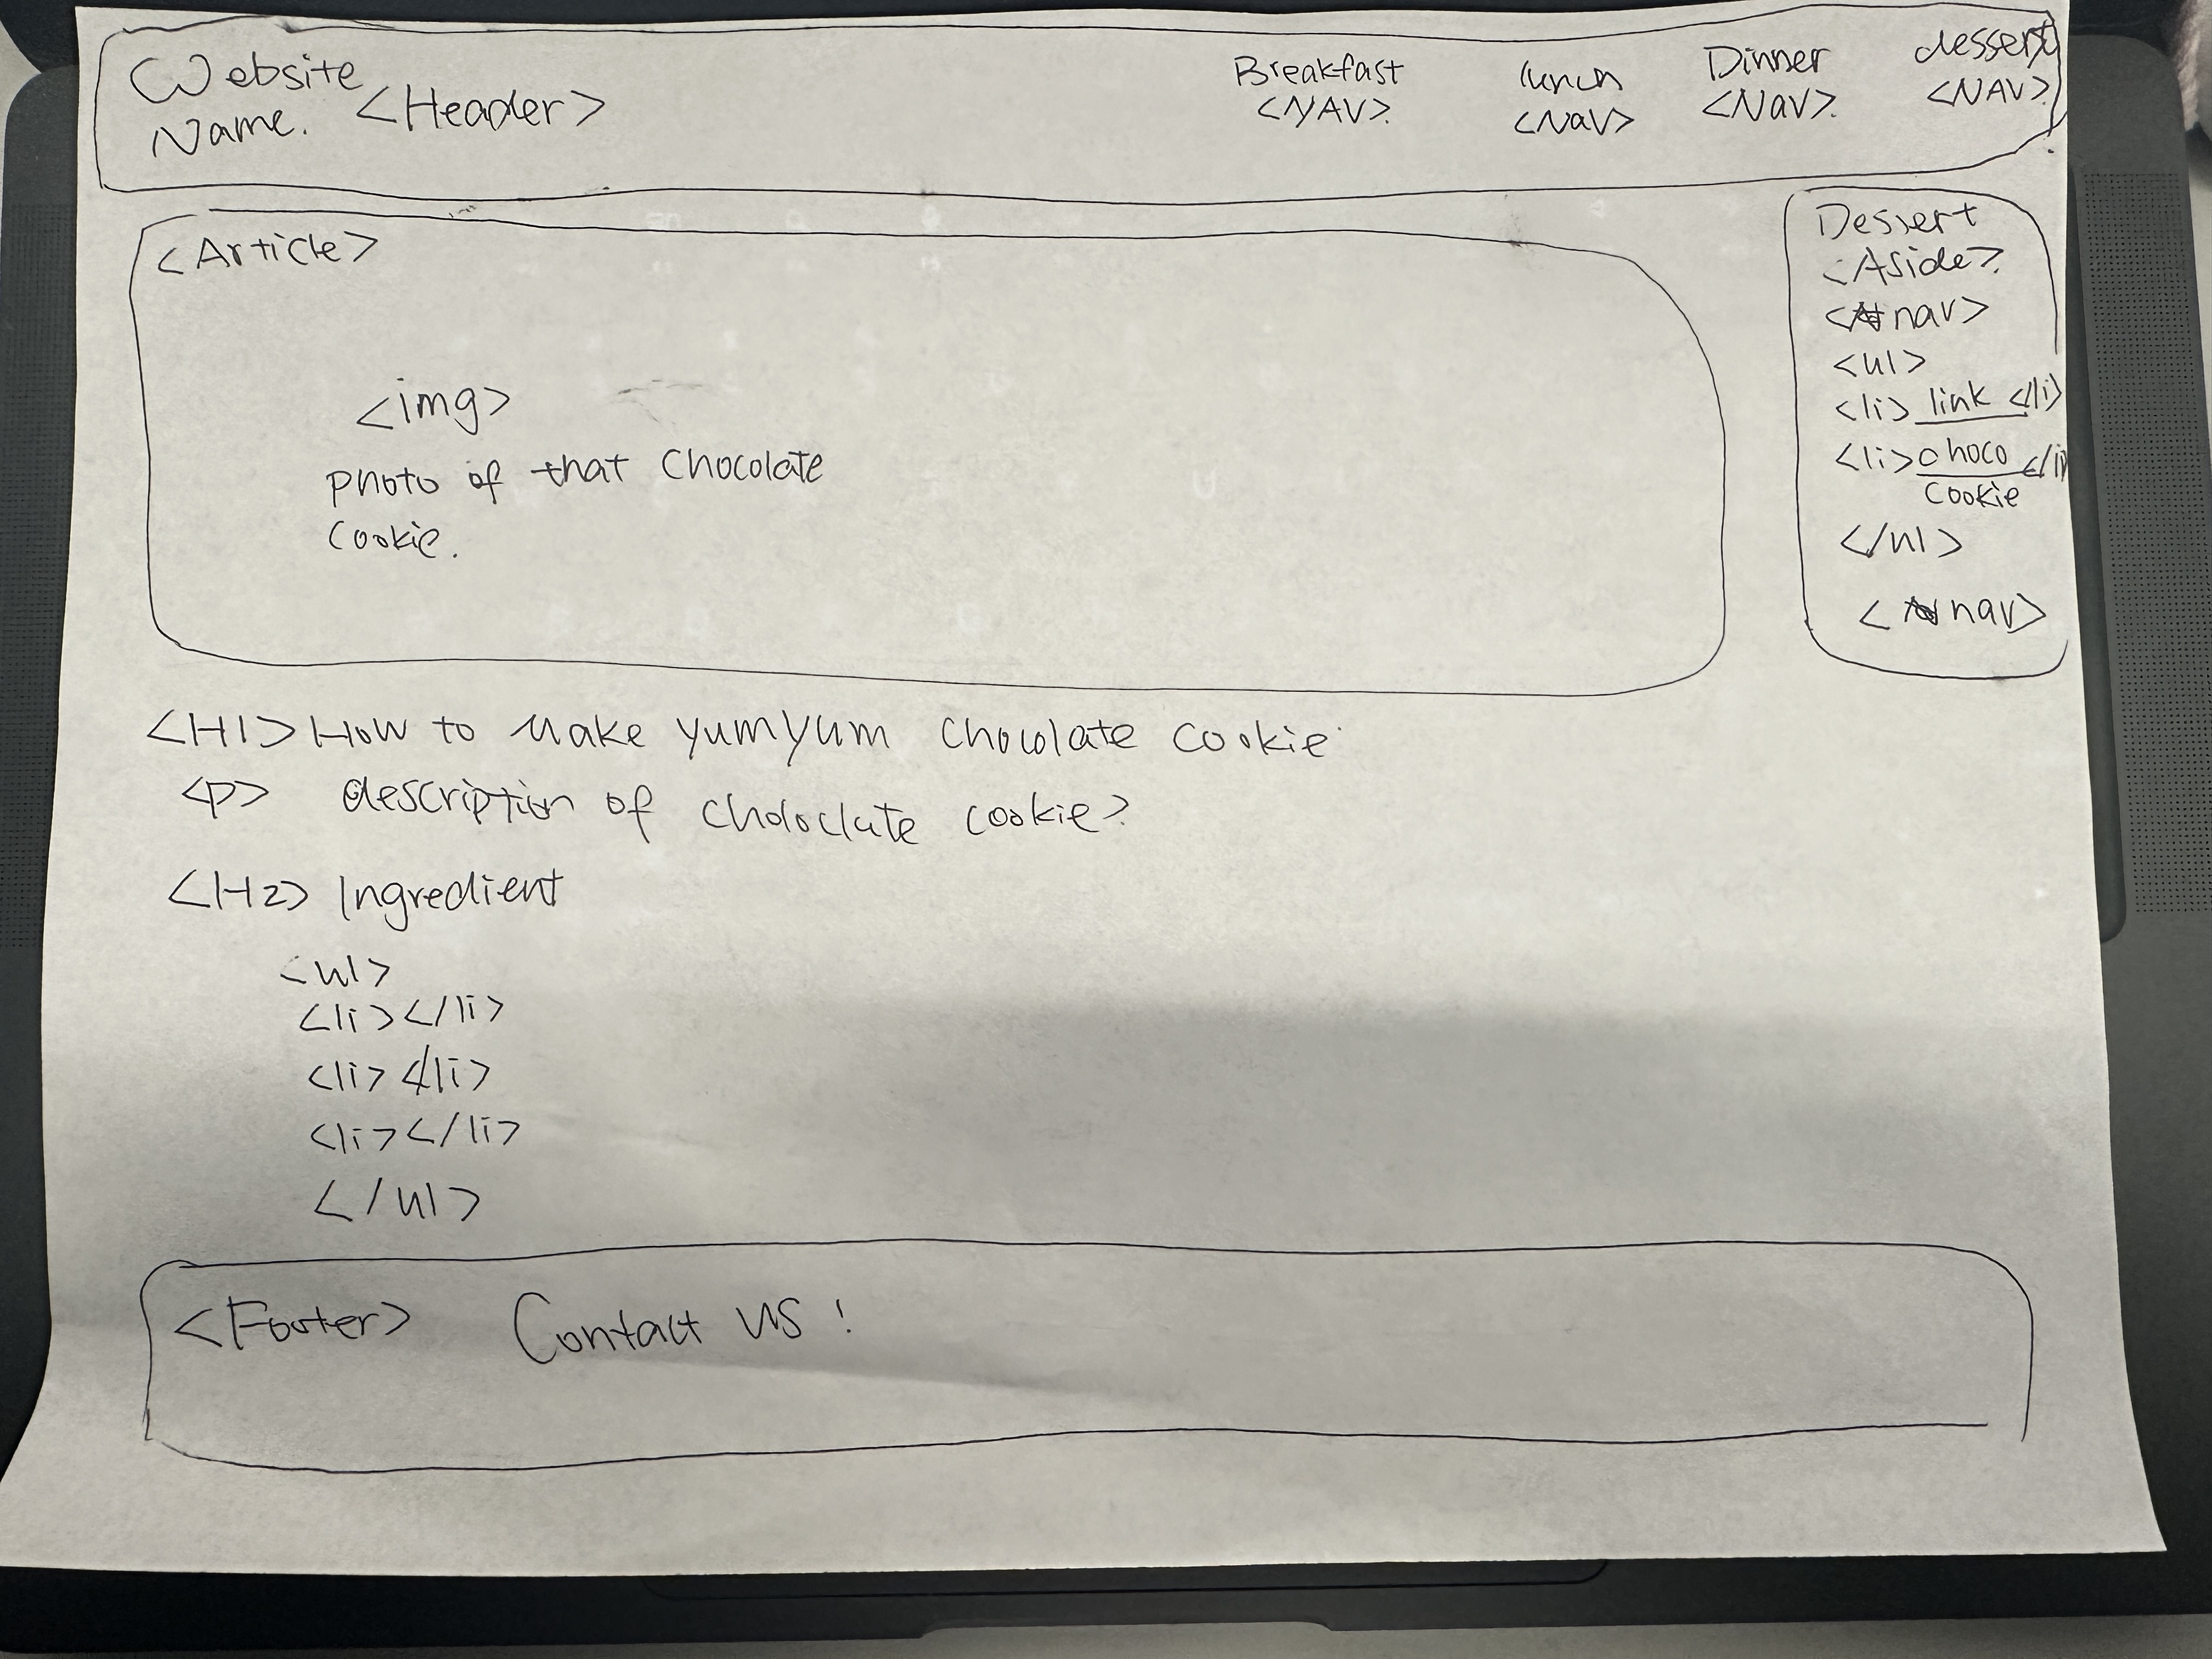 Website
Name.
<Header>
Breakfast
<NAV>
lunch
<Nav>
Dinner
<Nav>
dessert
<NAV>
<Article>
<img>
photo of that chocolate
cookie.
Dessert
<Aside>
<nav>
<ul>
<li> link </li>
<li> choco </li
cookie
</ul>
<nav>
<H1> How to make yumyum chocolate cookie.
<p> description of choloclate cookie>
<H2> Ingredient
<ul>
<li></li>
<li> </li>
<li></li>
</ul>
<Footer> Contact us!